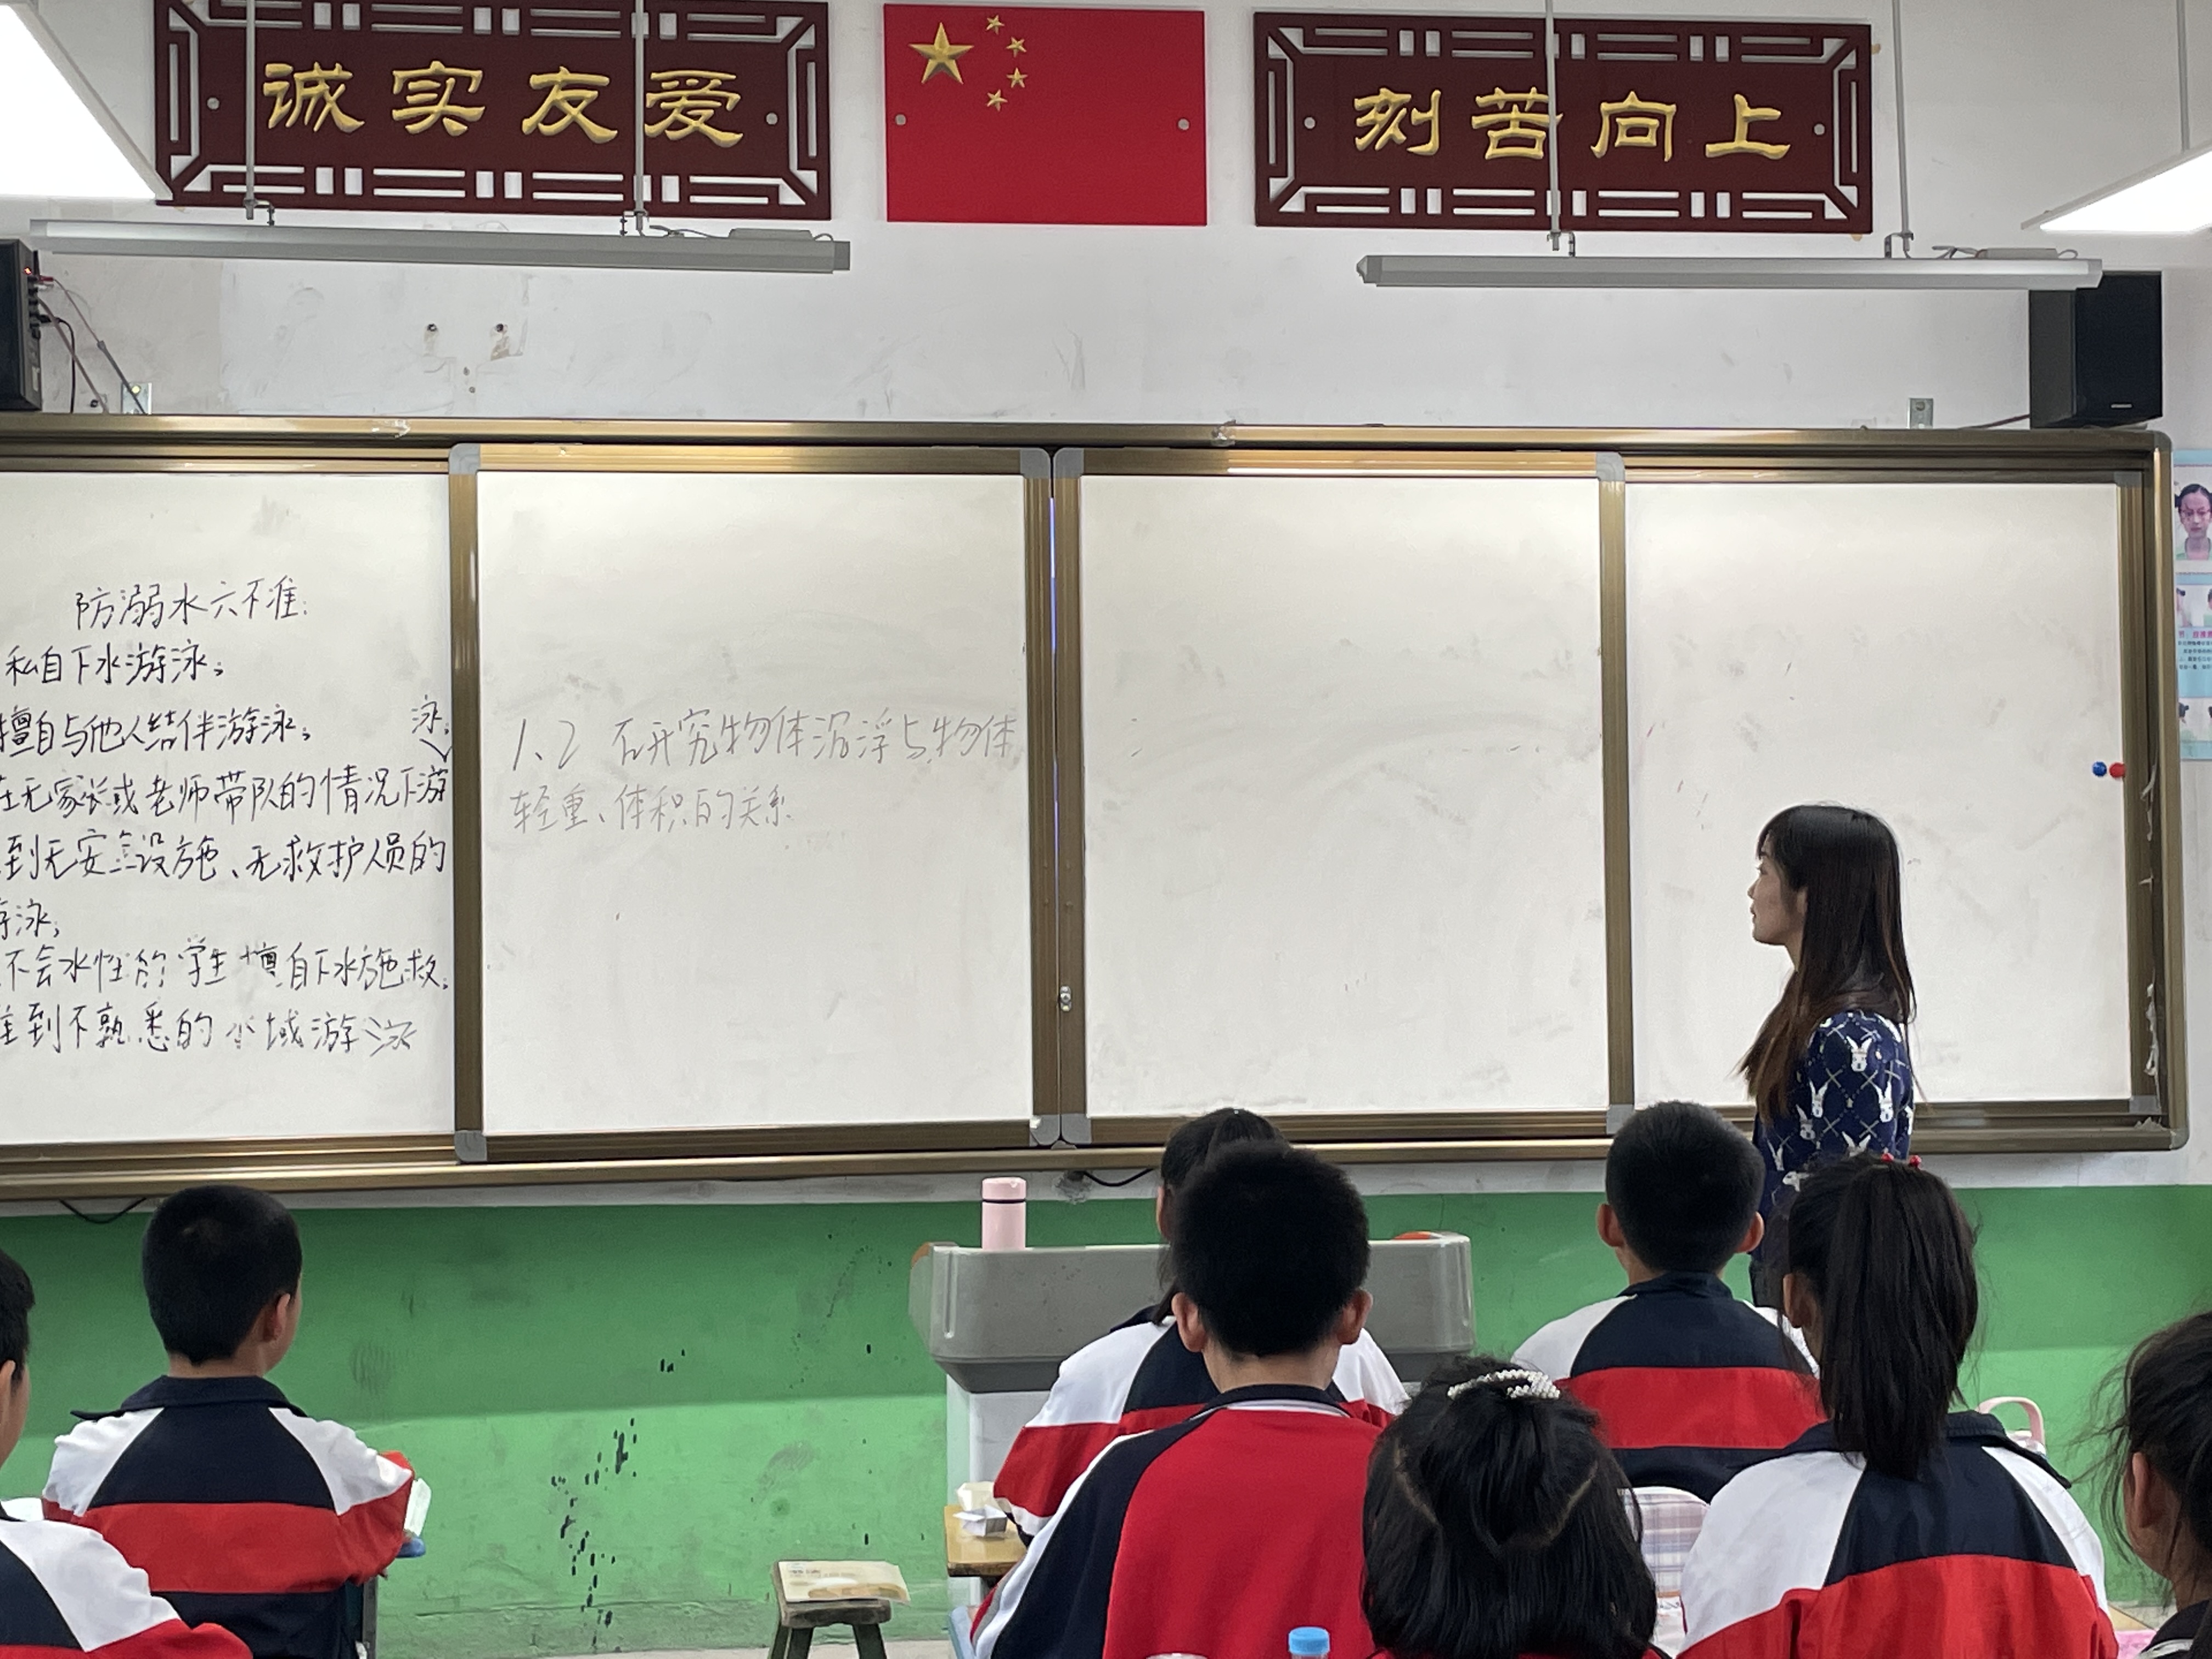 诚实友爱
刻苦向上
防溺水六不准:
私自下水游泳;
擅自与他人结伴游泳;
在无家长或老师带队的情况下游泳;
到无安全设施、无救护人员的
游泳;
不会水性的学生擅自下水施救.
准到不熟悉的水域游泳
1、2 研究物体沉浮与物体
轻重、体积的关系